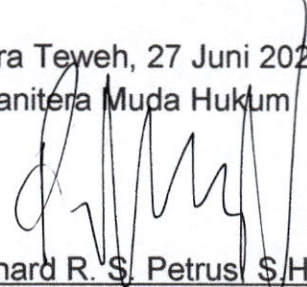 ra Teweh, 27 Juni 202
anitera Muda Hukum
hard R. S. Petrus, S.H